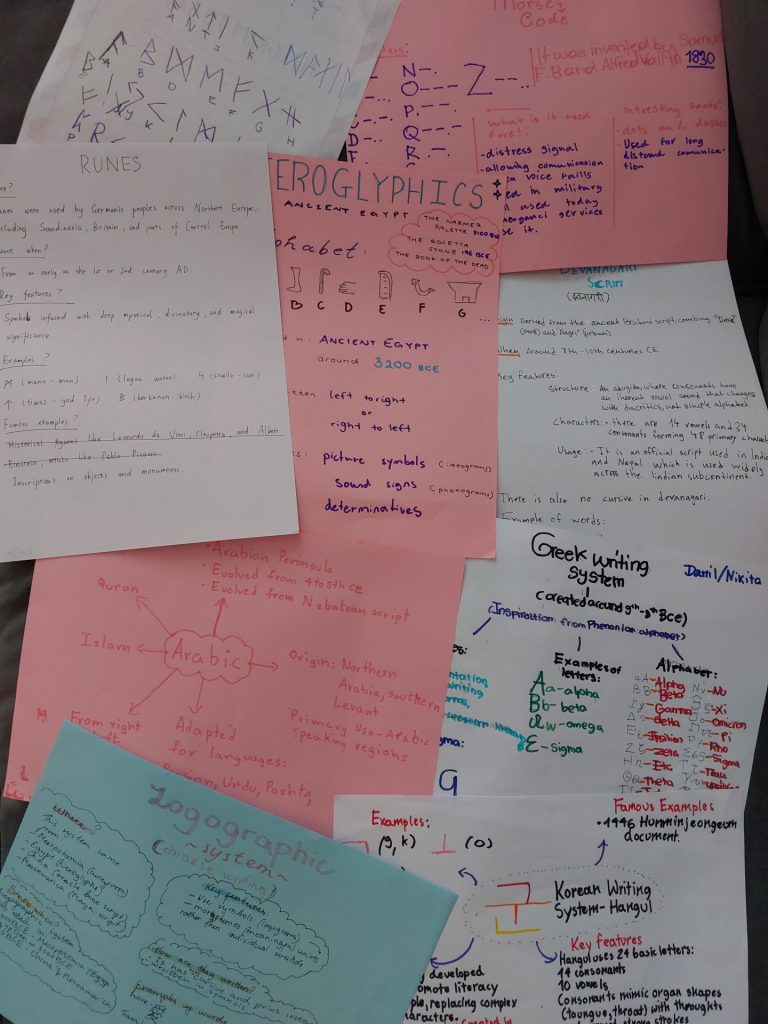 Morse
Code
It was invented by Samu
F. B and Alfred Vail in 1830
N -.
O ---
P .--.
Q --.-
R .-.
Z --..
What is it used
fore?!
-distress signal
-allowing comunication
n voice faills
ed in military
used today
mergancy services
se it.
intresting facts!
- dots and dashes
- Used for long
distound comunica-
tion
RUNES
ere?
unes were used by Germanic peoples across Northern Europe,
cluding Scandinavia, Britain, and parts of Central Europe
where when?
From as early as the 1st or 2nd century AD
Key features?
Symbols infused with deep mystical, divinatory, and magical
significance
Examples?
ᛗ (mann - man) ᛚ (laguz - water) ᛋ (sowilo - sun)
ᛏ (tiwaz - god Týr) ᛒ (berkanan - birch)
Famous examples?
Historical figures like Leonardo da Vinci, Cleopatra, and Albert
Einstein, artists like Pablo Picasso.
Inscriptions on objects and monuments
EROGLYPHICS
ANCIENT EGYPT
THE NARMER
PALETTE 3100 BCE
THE ROSETTA
STONE 196 BCE
THE BOOK OF THE DEAD
phabet:
B C D E F G ...
d in: ANCIENT EGYPT
around 3200 BCE
tten left to right
or
right to left
picture symbols (ideograms)
sound signs (phonograms)
determinatives
DEVANAGARI
SCRIPT
(देवनागरी)
igin: Derived from the ancient Brahmi script, combing "Deva"
(god) and Nagri" (urban).
When: Around 7th-10th centuries CE.
Key features:
Structure: An abugida, where consonants have
an iherent vowel sound that changes
with diacritics, not simple alphabet.
Characters:- there are 14 vowels and 34
consonants forming 48 primary charact
Usage:- It is an official script used in India
and Nepal which is used widely
across the Iindian subcontinent.
There is also no cursive in devanagari.
Example of words:
Arabic
• Arabian Peninsula
• Evolved from 4 to 5th CE
• Evolved from Nabatean script
Quron
Islam
Origin: Northern
Arabia, southern
Levant
Primary use - Arabic
speaking regions
From right
left:
Adapted
for languages:
Persian, Urdu, Pashto,
Greek writing
system
Danil/Nikita
(created around 9th-8th Bce)
(Inspiration from Phenonian alphabet)
Examples of
letters:
Aa-alpha
Bb-beta
Ωω-omega
Ɛ-Sigma
Alphabet:
Alpha
Beta
Gamma
delta
Epsilon
Zeta
Etc
Theta
Nu
Xi
Omicron
Pi
Rho
Sigma
Tau
Logographic
~system~
(chinese writing)
Where?
This system came
from
- Mesopotamia (cuneiform)
- Egypt (hieroglyphs)
- China (oracle bone script)
- Mesoamerica (Maya script)
Key features:
- Use symbols (logograms)
- morphemes (meaningful units
rather then individual sounds
How are they written?
Example of words
Examples:
(g, k) ㅗ (o)
Famous Examples
• 1446 Hunminjeongeum
document.
Korean Writing
System - Hangul
Key features
Hangul uses 24 basic letters:
14 consonants
10 vowels
Consonants mimic organ shapes
(toungue, throat) with thoughts
y developed
omote literacy
ple, replacing complex
aracters.
Created in